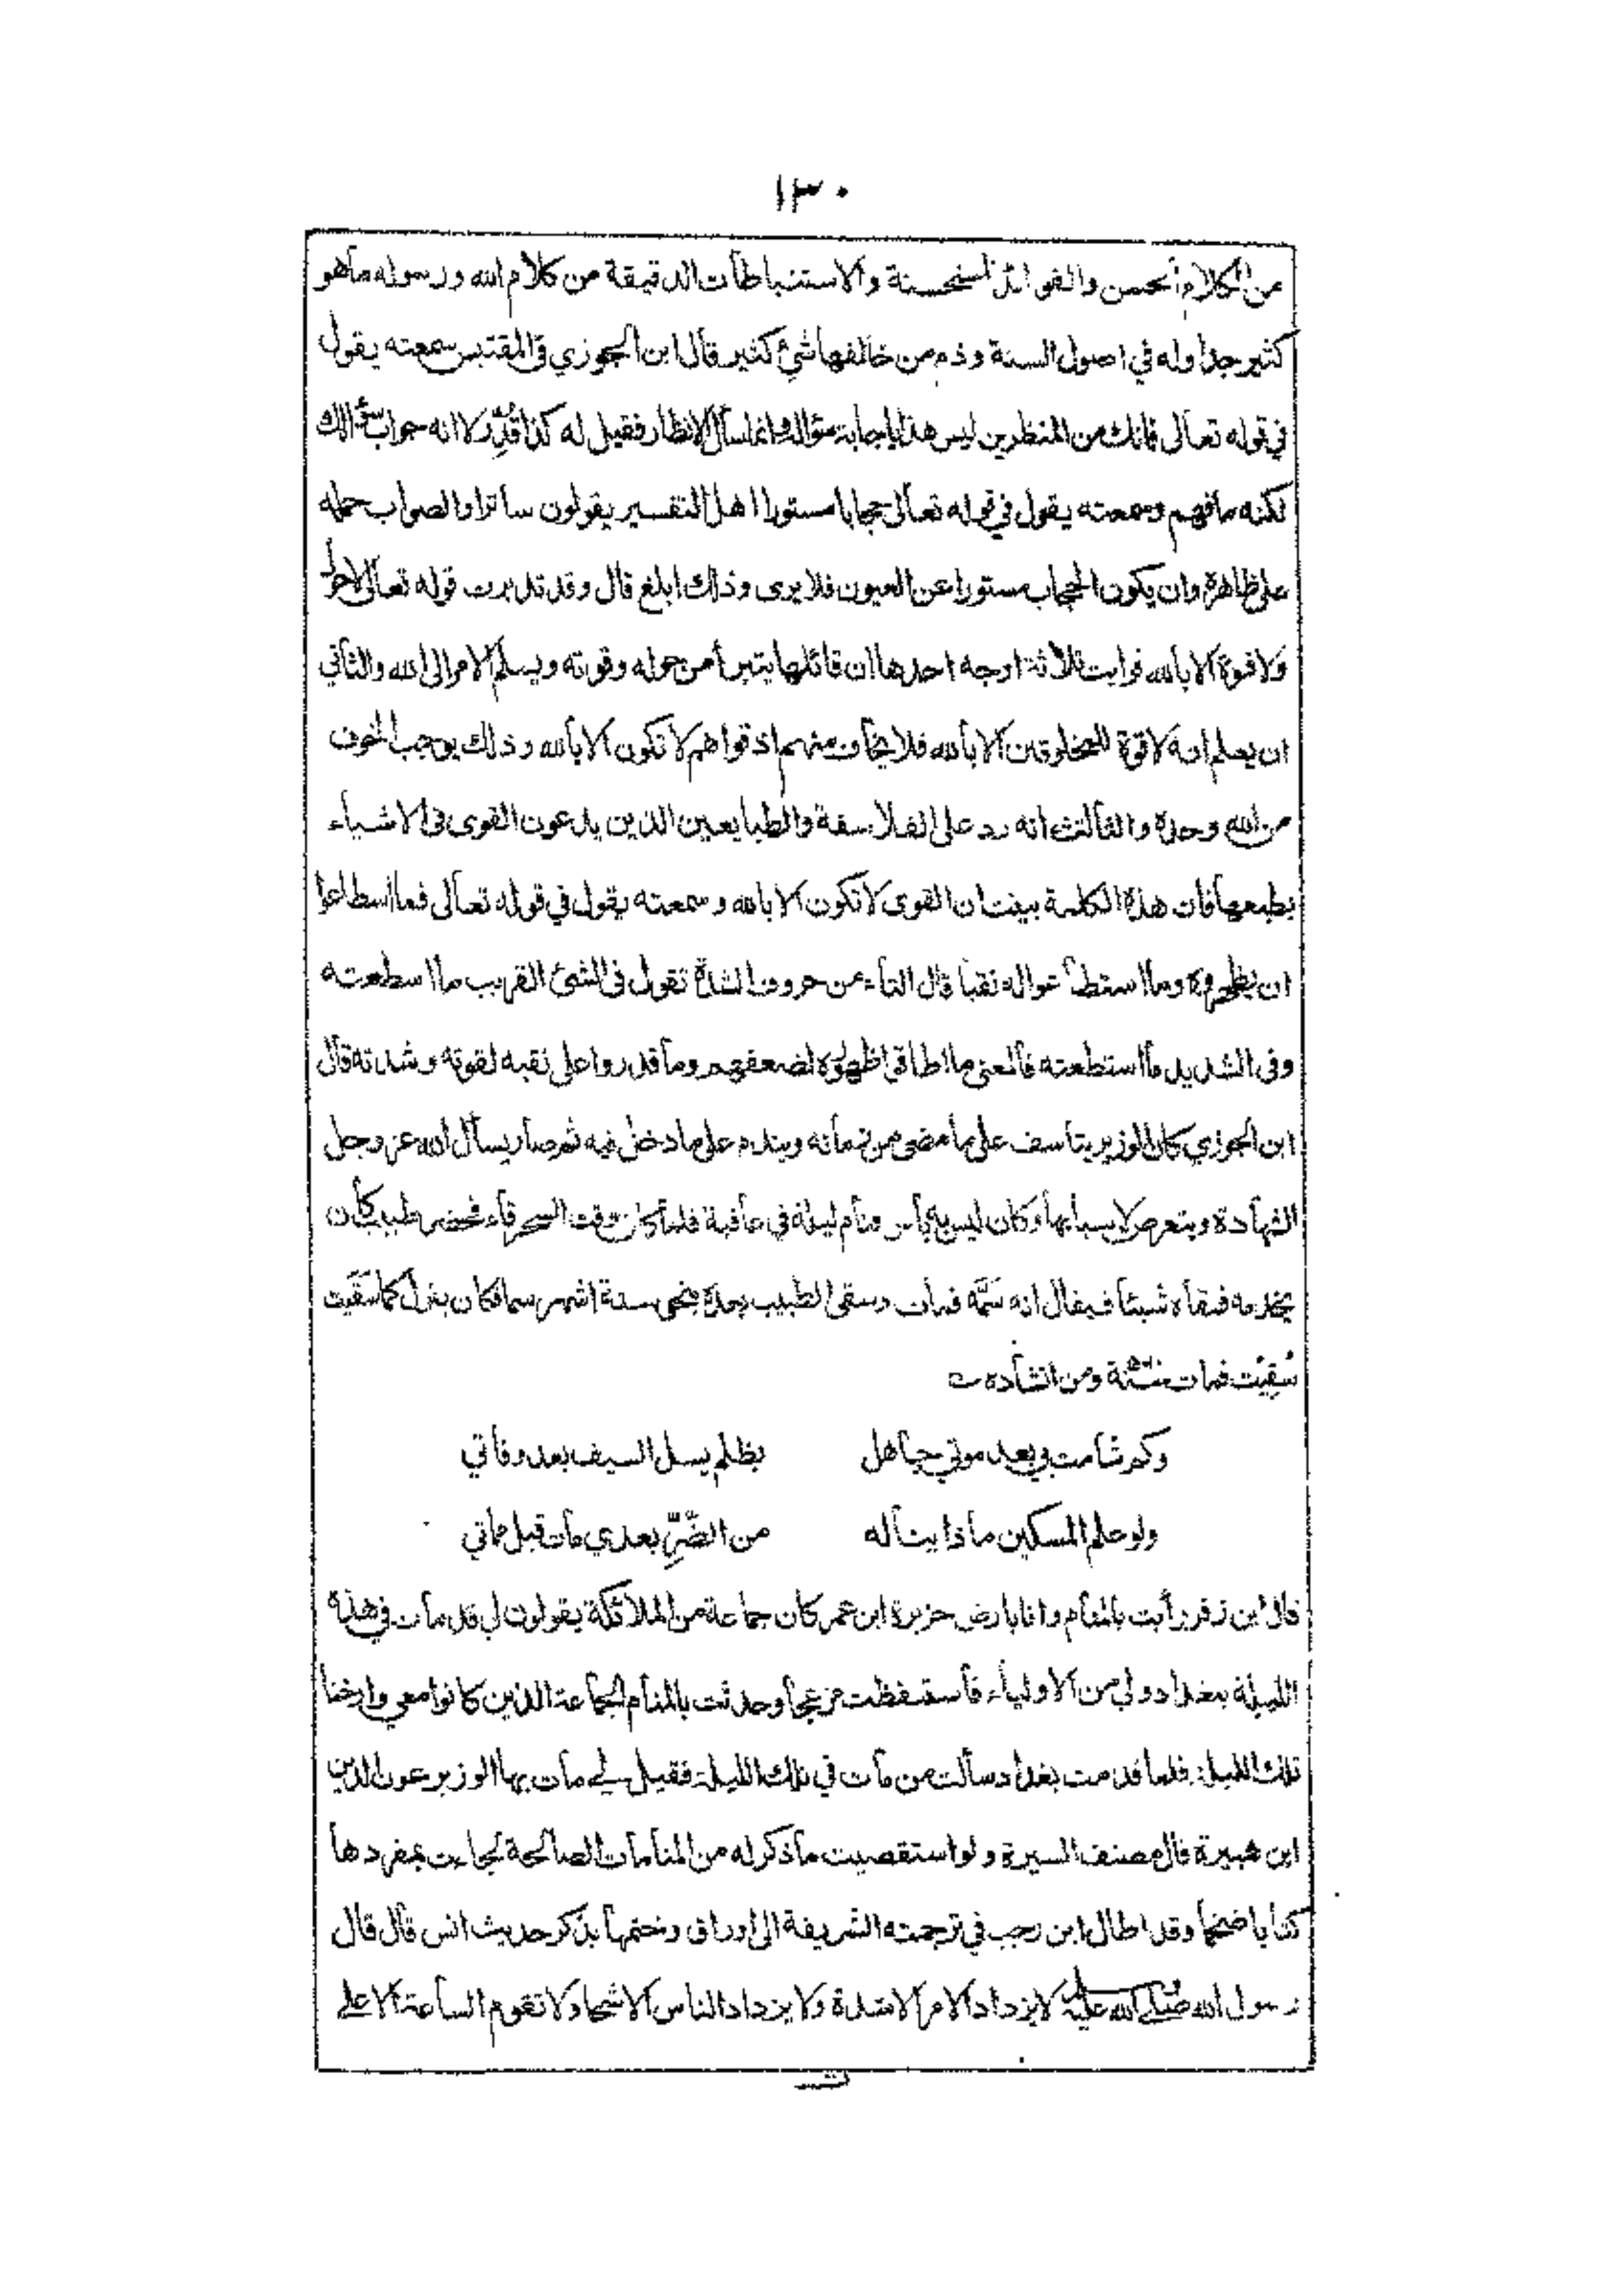 ١٣٠
من الكلام الحسن والفوائد المستحسنة والاستنباطات الدقيقة من كلام الله ورسوله ما هو
كثير جدا وله في اصول السنة وذم من خالفها شئ كثير قال ابن الجوزي في المقتبس سمعته يقول
في قوله تعالى فانك من المنظرين ليس هذا باجابة سؤاله وانما سأل الانظار فقيل له كذا قُدِّر لا انه جواب سؤالك
لكنه ما فهم وسمعته يقول في قوله تعالى حجابا مستورا اهل التفسير يقولون ساترا والصواب حمله
على ظاهره وان يكون الحجاب مستورا عن العيون فلا يرى وذلك ابلغ قال وقد تدبرت قوله تعالى لا حول
ولا قوة الا بالله فرايت ثلاثة اوجه احدها ان قائلها يتبرأ من حوله وقوته ويسلم الامر الى الله والثاني
ان يعلم انه لا قوة للمخلوقين الا بالله فلا يخاف منهم اذ قواهم لا تكون الا بالله وذلك يوجب الخوف
من الله وحده والثالث انه رد على الفلاسفة والطبايعين الذين يدعون القوى فى الاشياء
بطبعها فان هذه الكلمة بينت ان القوى لا تكون الا بالله وسمعته يقول في قوله تعالى فما اسطاعوا
ان يظهروه وما استطاعوا له نقبا قال التاء من حروف الشدة تقول فى الشئ القريب ما اسطعته
وفى الشديد ما استطعته فالمعنى ما اطاقوا ظهوره لضعفهم وما قدروا على نقبه لقوته وشدته قال
ابن الجوزي كان الوزير يتاسف على ما مضى من زمانه ويندم على ما دخل فيه ثم صار يسأل الله عز وجل
الشهادة ويتعرض لاسبابها وكان ليس به بأس ونام ليلة في عافية فلما كان وقت السحر قاء فحضر طبيب كان
يخدمه فسقاه شيئا فيقال انه سَمَّه فمات وسقى الطبيب بعده بنحو ستة اشهر سما فكان يقول كما سَقَيت
سُقِيْت فمات سنة ومن انشاده
وكم شامت بي بعد موتي جاهل بظلم يسل السيف بعد وفاتي
ولو علم المسكين ماذا يناله من الضُّرِّ بعدي مات قبل مماتي
قال ابن زفر رأيت بالمنام وانا بارض جزيرة ابن عمر كان جماعة من الملائكة يقولون لي قد مات في هذه
الليلة ببغداد ولي من الاولياء فاستيقظت منزعجا وحدثت بالمنام الجماعة الذين كانوا معي وارخنا
تلك الليلة فلما قدمت بغداد سألت من مات في تلك الليلة فقيل لي مات بها الوزير عون الدين
ابن هبيرة قال مصنف السيرة ولو استقصيت ما ذكر له من المنامات الصالحة لجاءت بمفردها
كتابا ضخما وقد اطال ابن رجب في ترجمته الشريفة الى اوراق وختمها بذكر حديث انس قال قال
رسول الله صلى الله عليه لا يزداد الامر الا شدة ولا يزداد الناس الا شحا ولا تقوم الساعة الا على